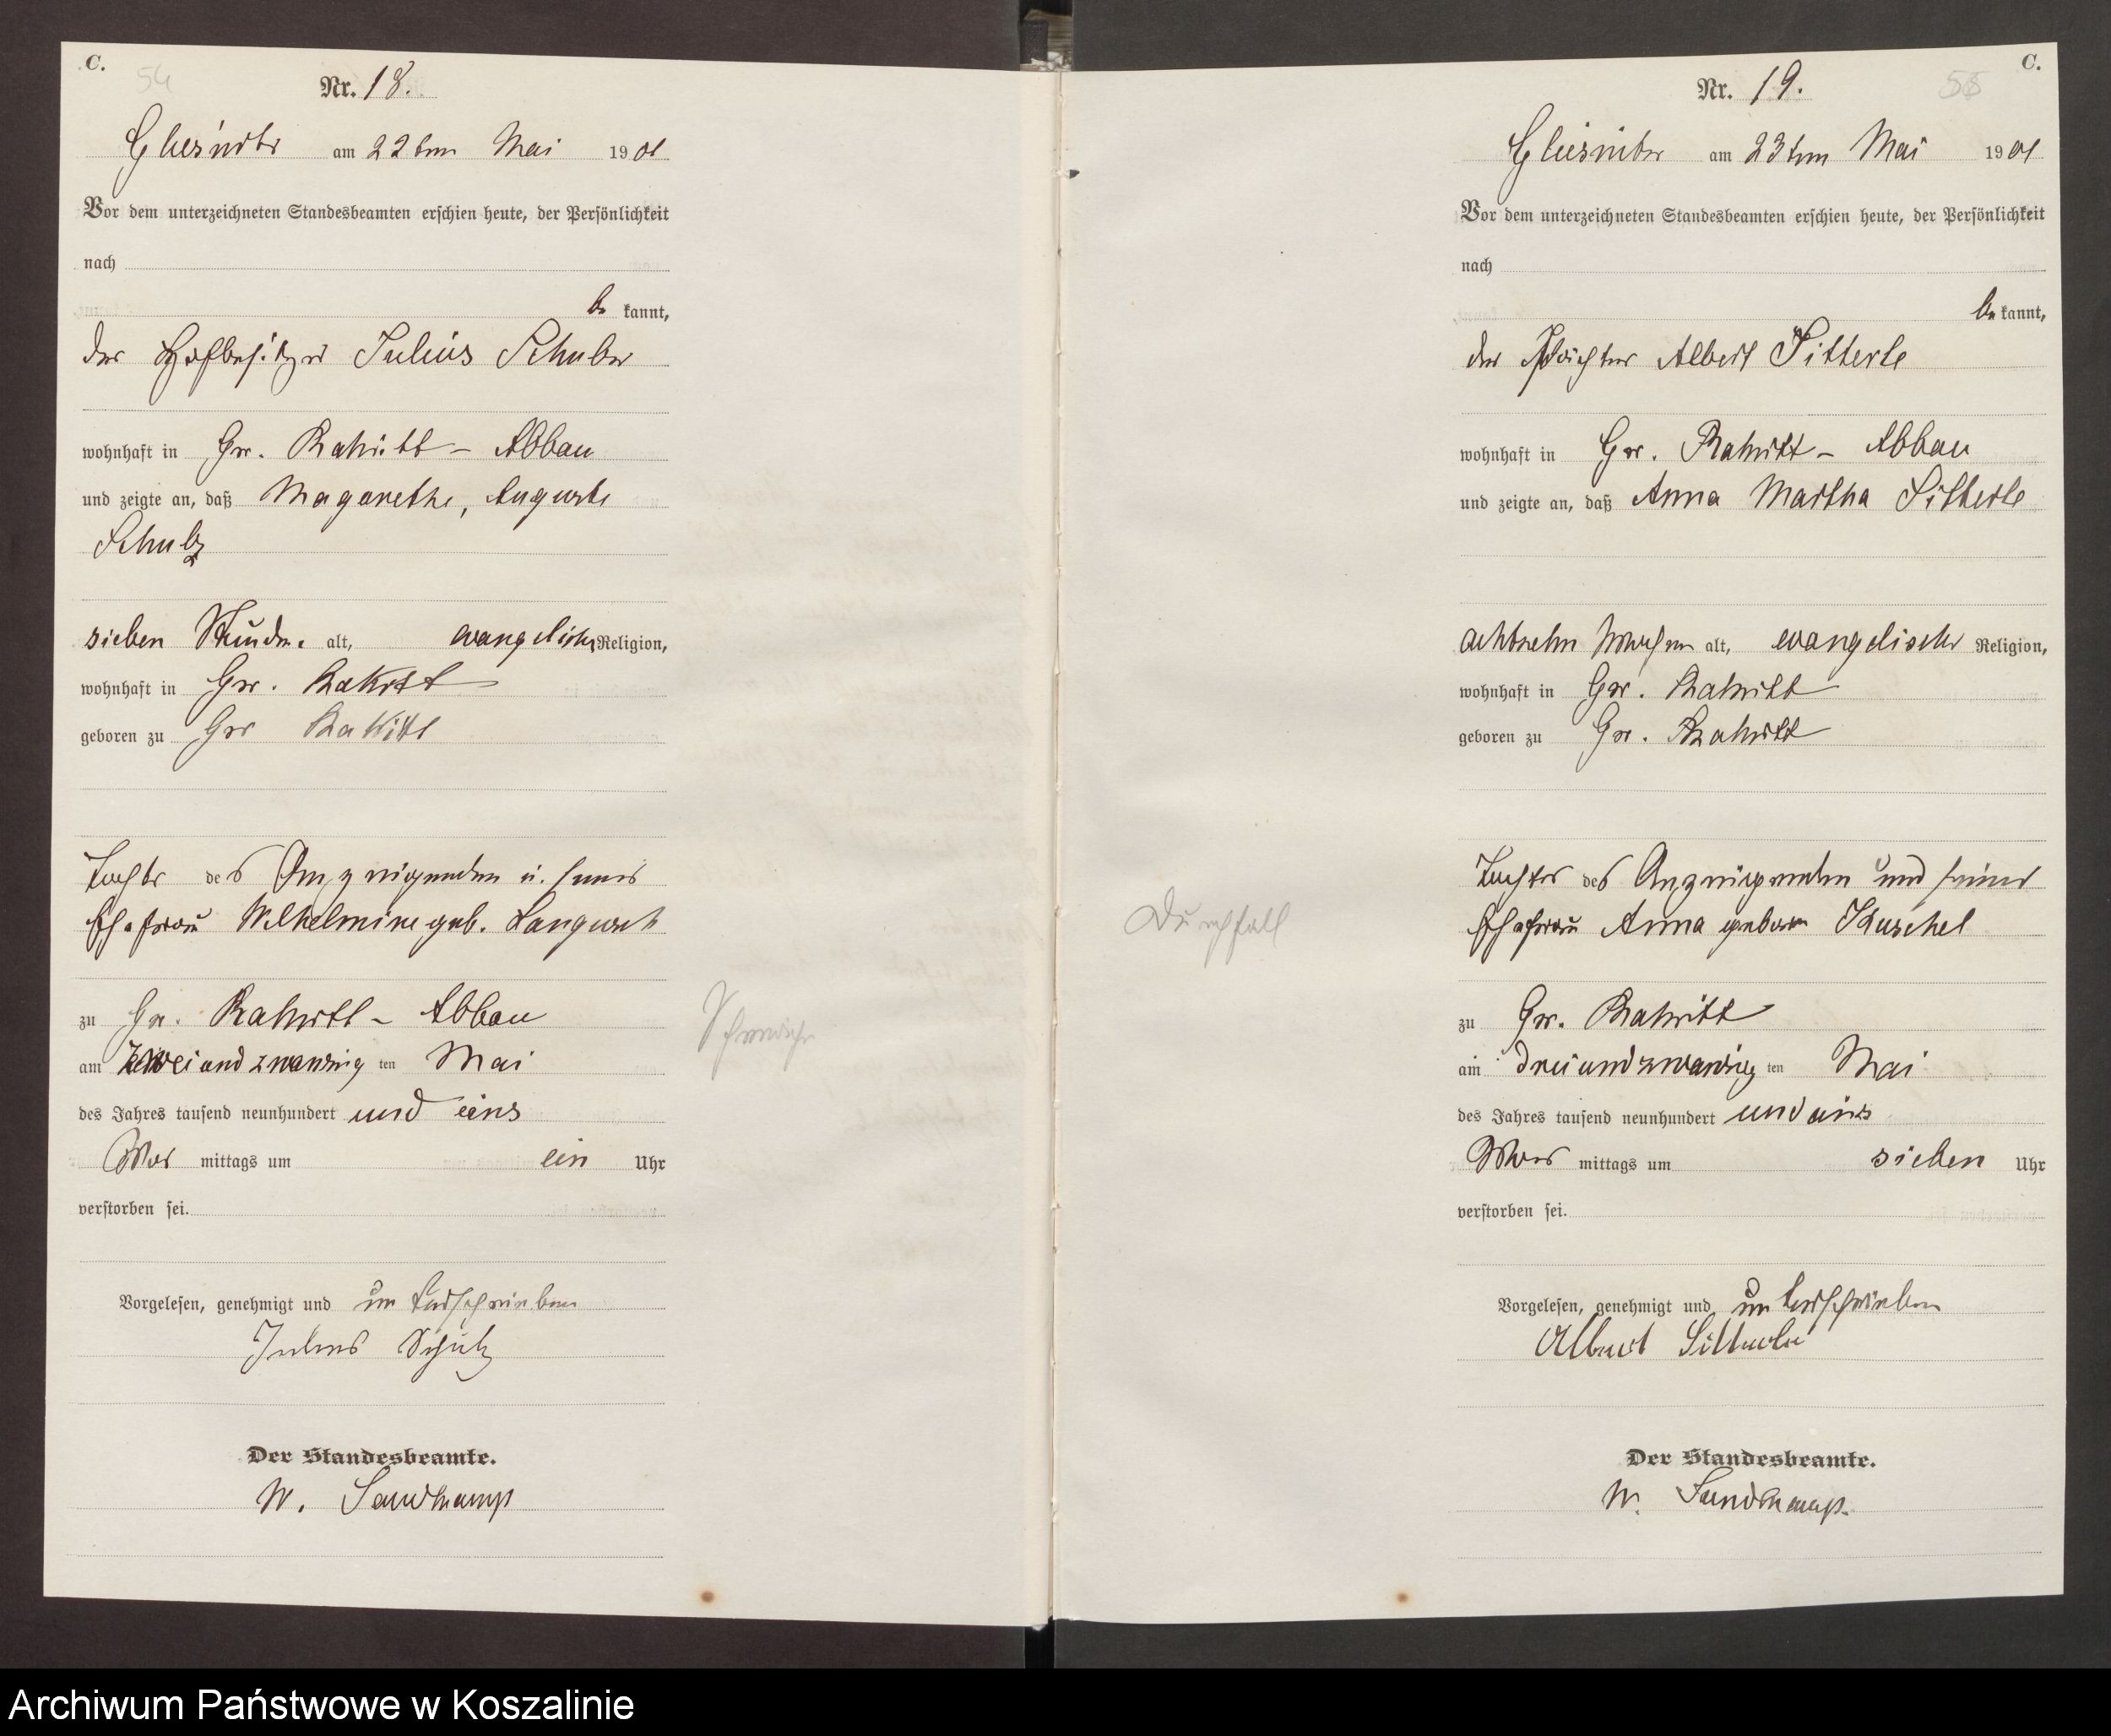 C.
54
Nr. 18.
Gliesnitz am 22ten Mai 1901
Vor dem unterzeichneten Standesbeamten erschien heute, der Persönlichkeit
nach
be kannt,
der Hofbesitzer Julius Schulz
wohnhaft in Gr. Rakitt - Abbau
und zeigte an, daß Magarethe, Auguste
Schulz
sieben Stunden alt, evangelischer Religion,
wohnhaft in Gr. Rakitt
geboren zu Gr Rakitt
Tochter des Anzeigenden u. seiner
Ehefrau Wilhelmine geb.
zu Gr. Rakitt - Abbau
am zweiundzwanzig ten Mai
des Jahres tausend neunhundert und eins
Vor mittags um ein Uhr
verstorben sei.
Vorgelesen, genehmigt und unterschrieben
Julius Schulz
Der Standesbeamte.
W. Sandkamp
Schwäche
C.
Nr. 19.
Gliesnitz am 23ten Mai 1901
Vor dem unterzeichneten Standesbeamten erschien heute, der Persönlichkeit
nach
be kannt,
der Pächter Albert Sitterle
wohnhaft in Gr. Rakitt - Abbau
und zeigte an, daß Anna Martha Sitterle
achtzehn Wochen alt, evangelischer Religion,
wohnhaft in Gr. Rakitt
geboren zu Gr. Rakitt
Tochter des Anzeigenden und seiner
Ehefrau Anna geboren Kuschel
Durchfall
zu Gr. Rakitt
am dreiundzwanzig ten Mai
des Jahres tausend neunhundert und eins
Vor mittags um sieben Uhr
verstorben sei.
Vorgelesen, genehmigt und unterschrieben
Albert Sitterle
Der Standesbeamte.
W. Sandkamp.
Archiwum Państwowe w Koszalinie